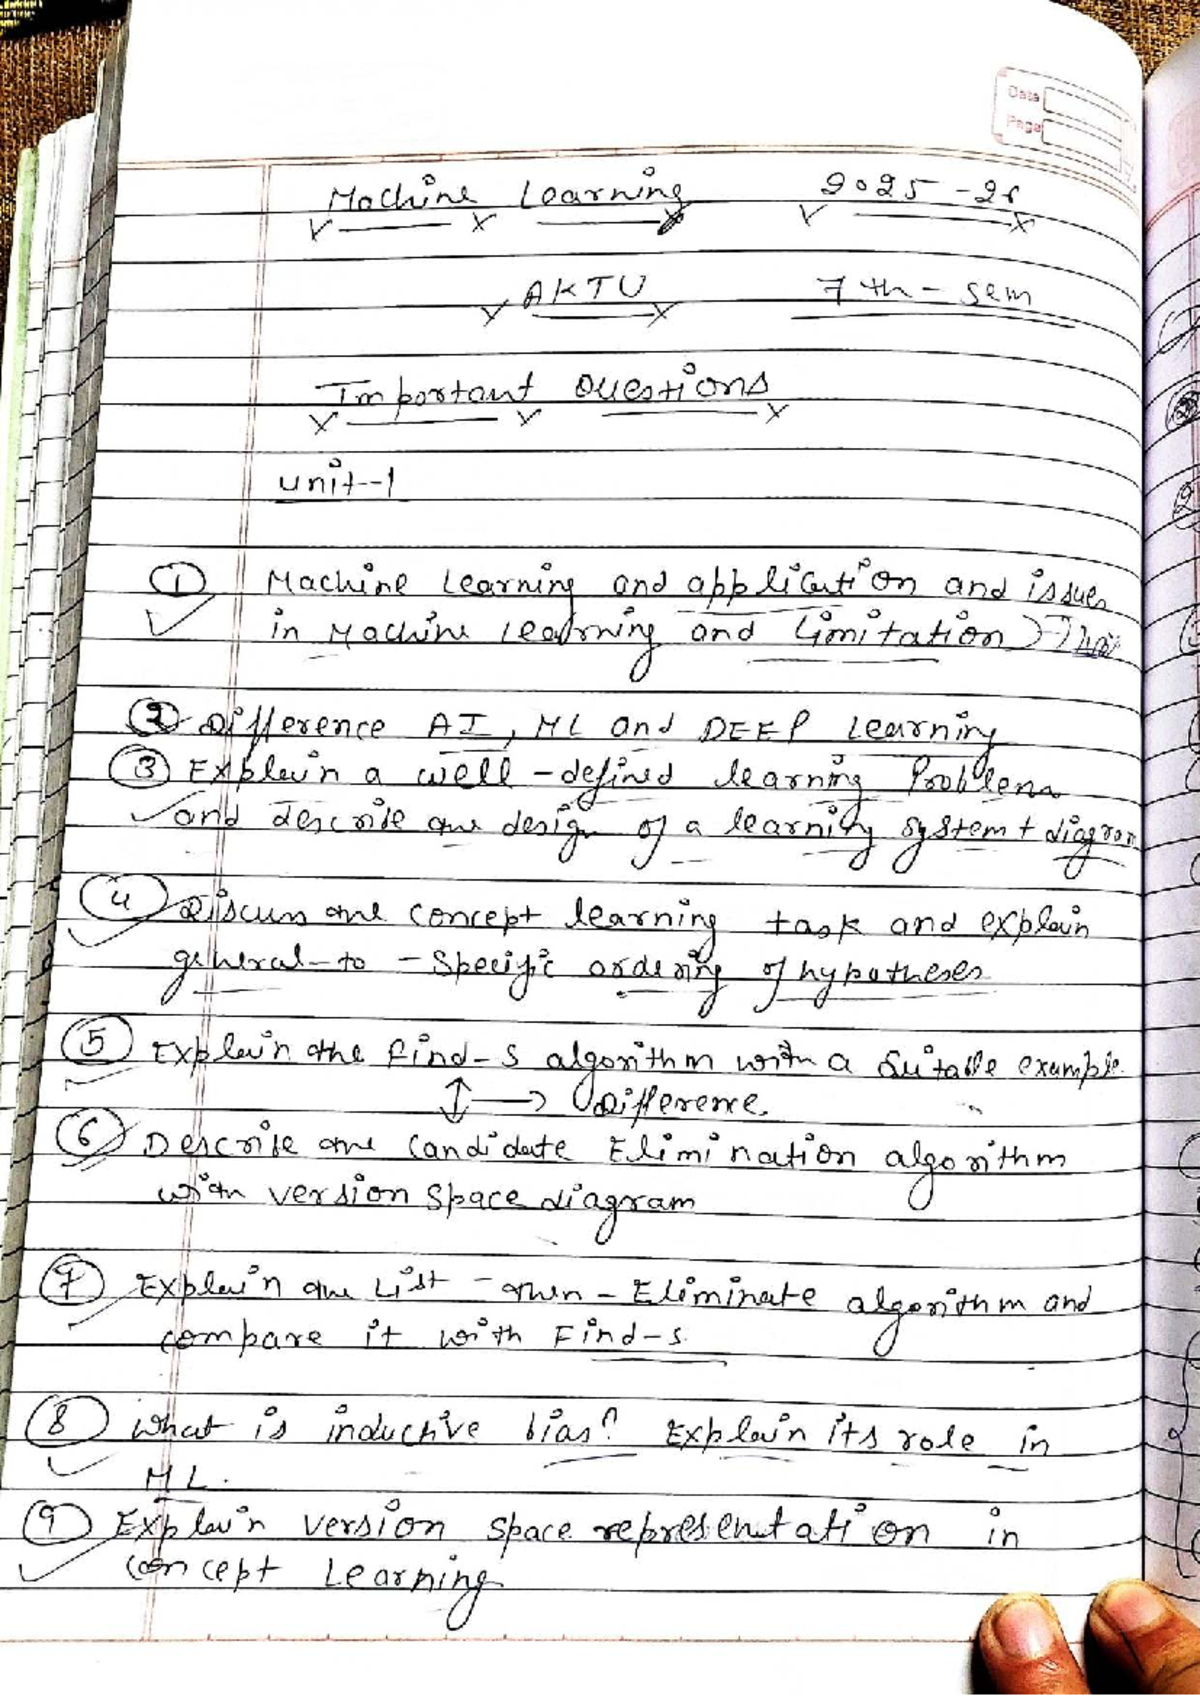 Date
Page
Machine Learning 2025-26
AKTU 7th - sem
Important Questions
unit-1
① Machine Learning and application and issues
in Machine Learning and Limitation
② Difference AI, ML and DEEP Learning
③ Explain a well-defined learning Problem
and describe the design of a learning system + diagram
④ Discuss the concept learning task and explain
general-to-specific ordering of hypotheses
⑤ Explain the Find-S algorithm with a Suitable example.
↕ → Difference.
⑥ Describe the Candidate Elimination algorithm
with version space diagram
⑦ Explain the List-then-Eliminate algorithm and
compare it with Find-s.
⑧ What is inductive bias? Explain its role in
ML.
⑨ Explain version space representation in
concept Learning